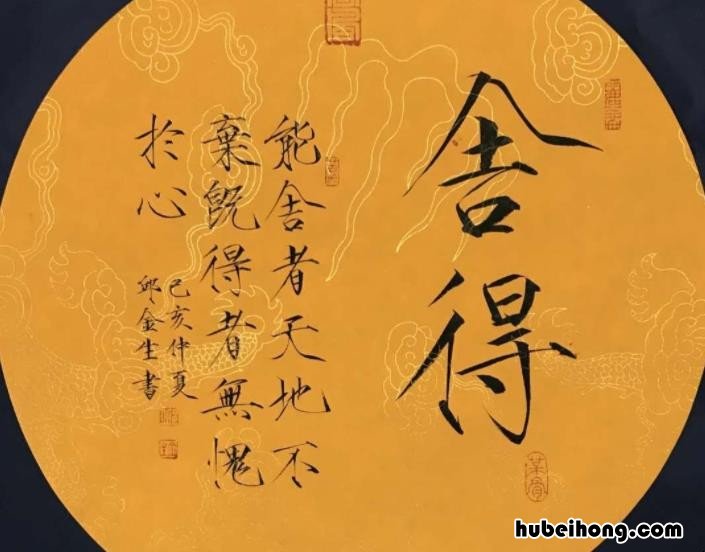 舍得
能舍者天地不
棄既得者無愧
於心
己亥仲夏
邱金生書
hubeihong.com